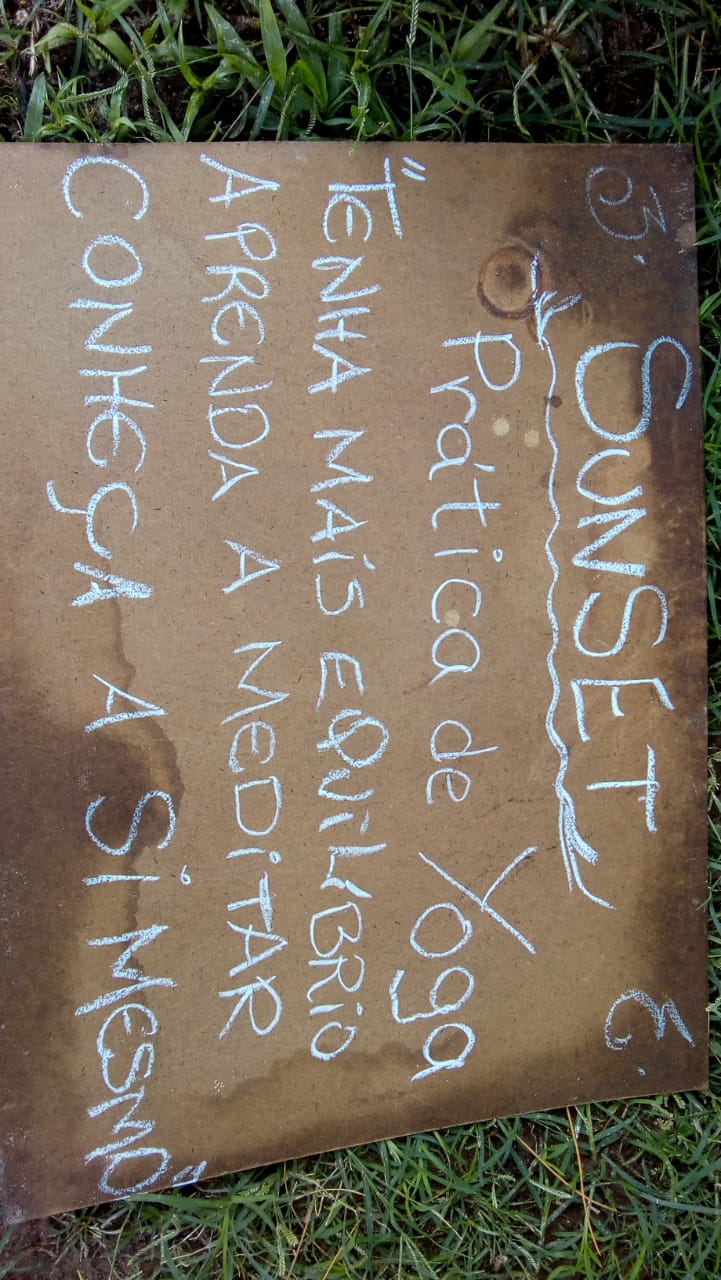 SUNSET
Prática de Yoga
"TENHA MAIS EQUILIBRIO
APRENDA A MEDITAR
CONHEÇA A SI MESMO"